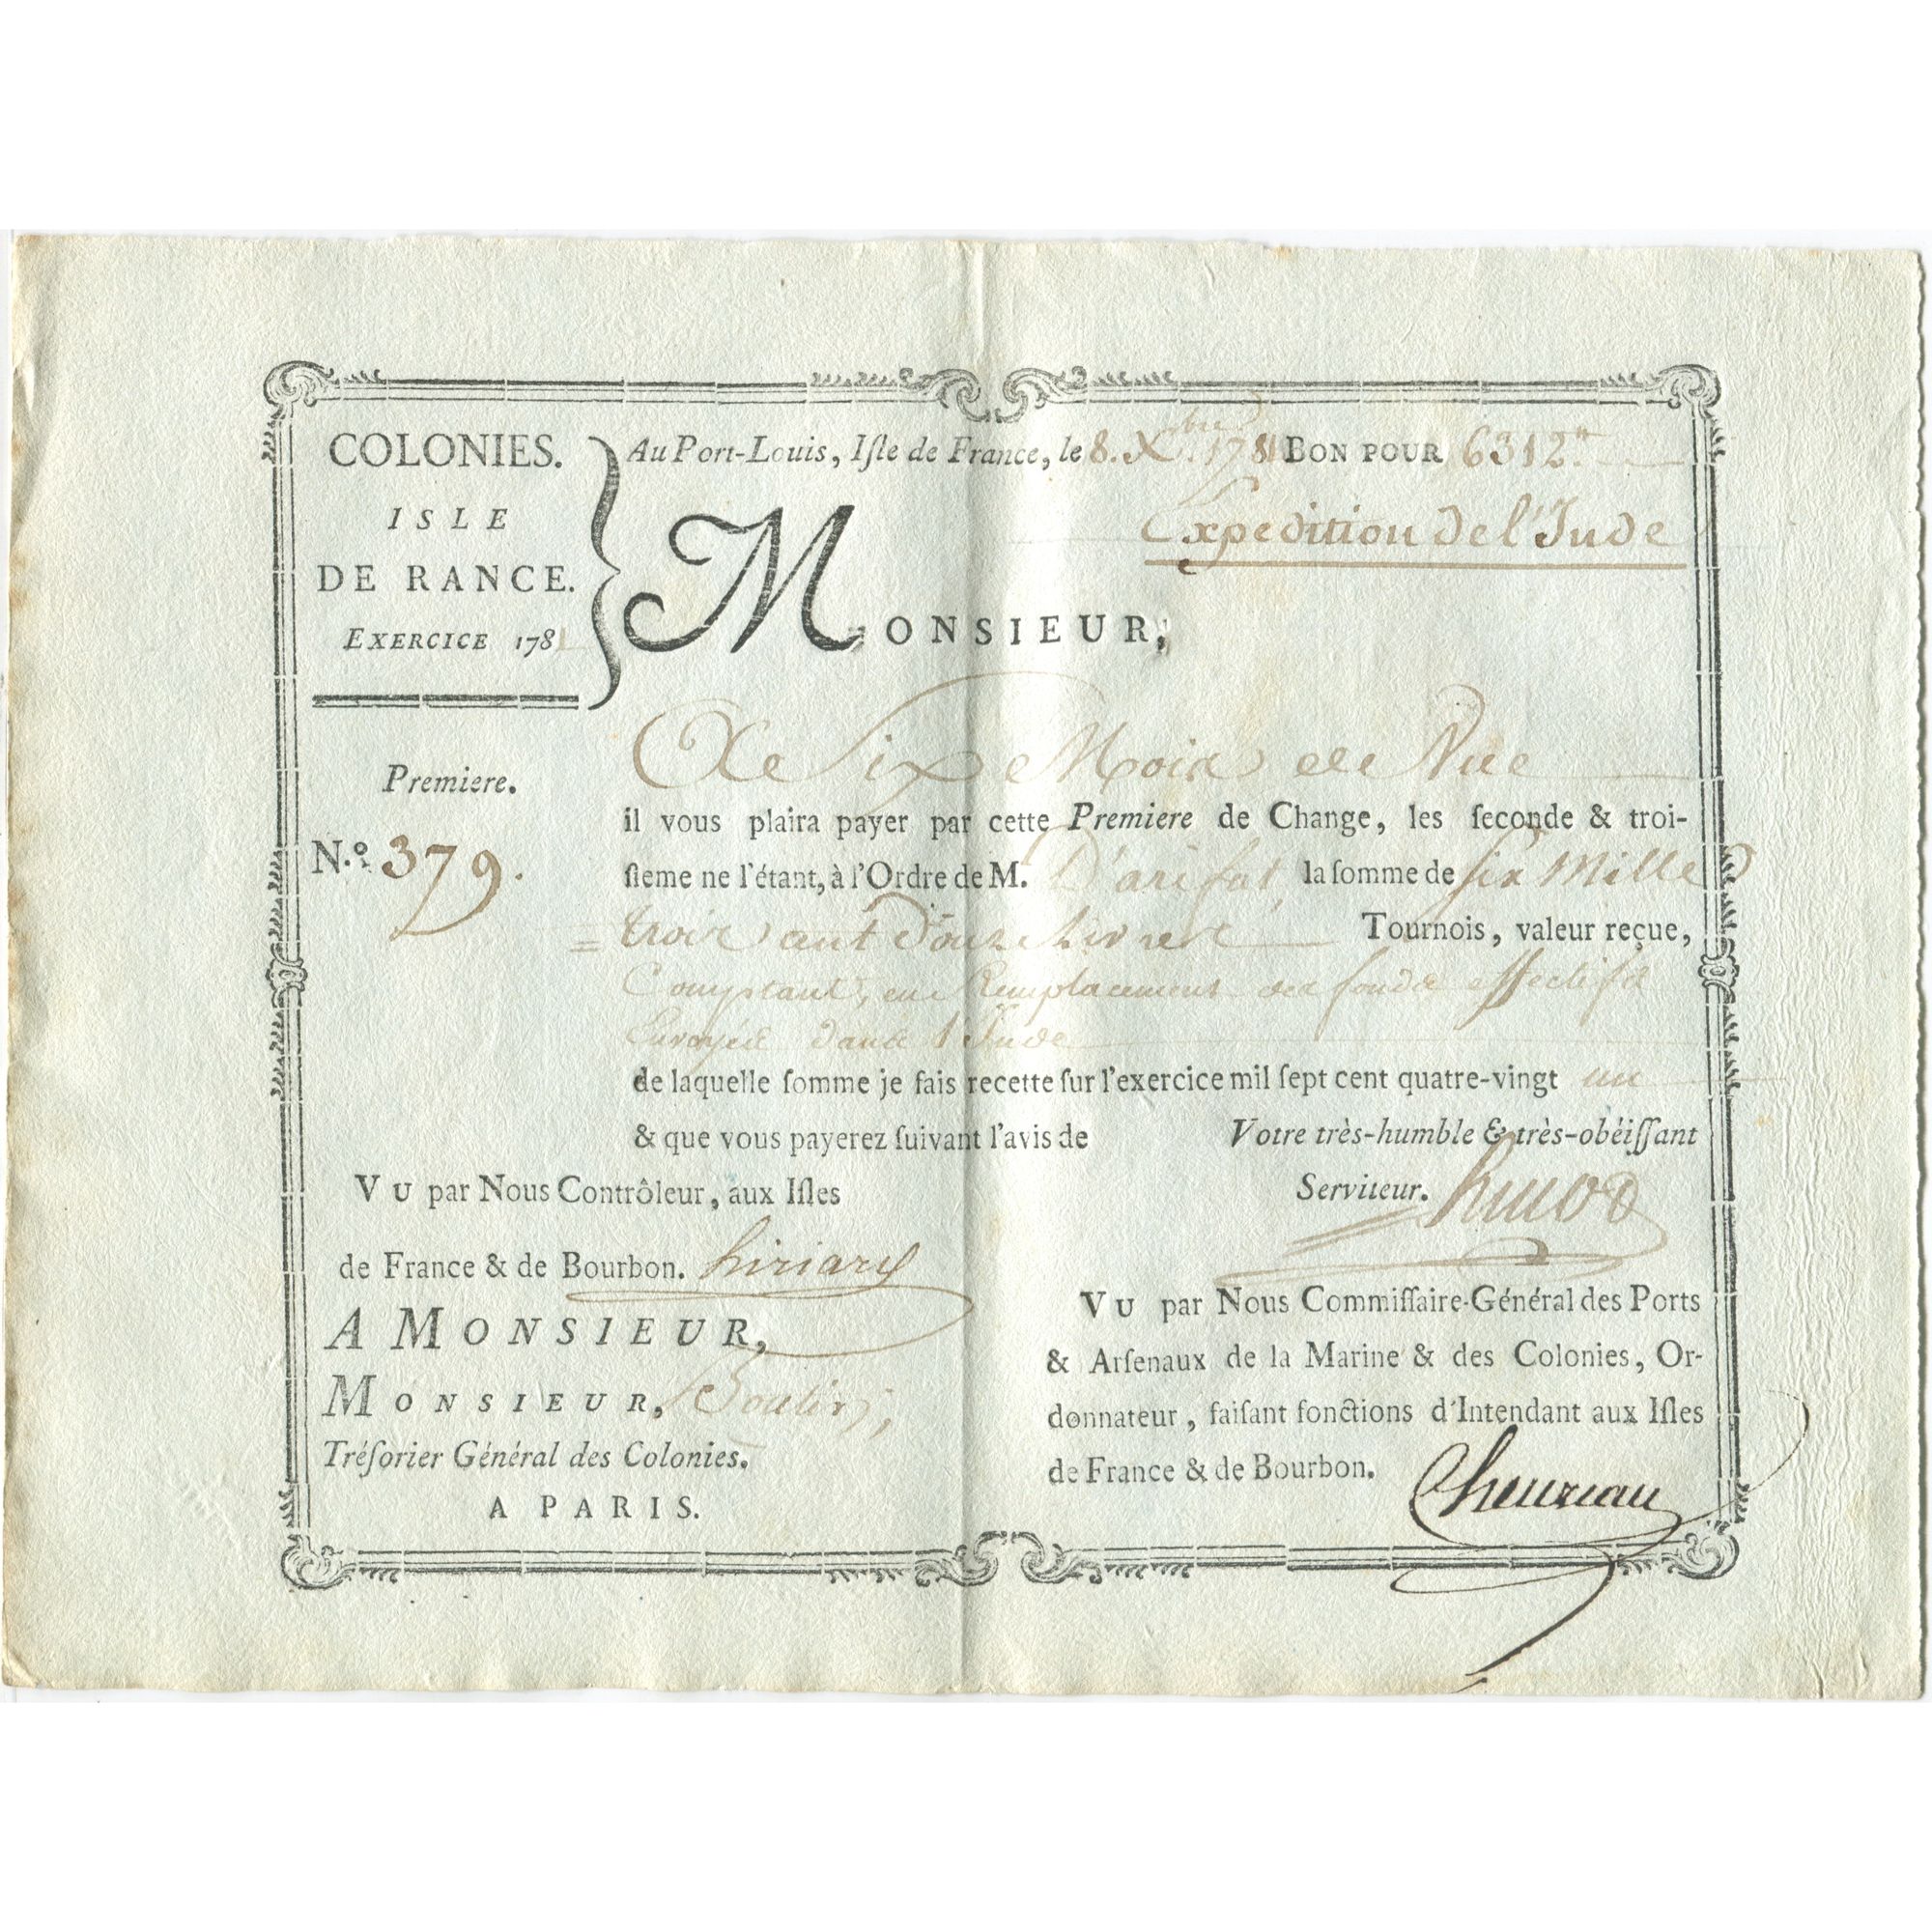 COLONIES.
ISLE
DE RANCE.
EXERCICE 1781
Au Port-Louis, Iſle de France, le 8. Xbre. 1781 BON POUR 6312.tt
Expedition de l'Inde
MONSIEUR,
Premiere.
N.º 379.
A Six Mois de Vüe
il vous plaira payer par cette Premiere de Change, les ſeconde & troi-
ſieme ne l'étant, à l'Ordre de M. D'arifat, la ſomme de ſix Mille
= trois cent douze Livres Tournois, valeur reçue,
Comptant, en Remplacement des fonds effectifs
Envoyés dans l'Inde
de laquelle ſomme je fais recette ſur l'exercice mil ſept cent quatre-vingt un
& que vous payerez ſuivant l'avis de
Votre très-humble & très-obéiſſant
Serviteur.
VU par Nous Contrôleur, aux Iſles
de France & de Bourbon. hiriart
A MONSIEUR,
MONSIEUR, Boutin,
Tréſorier Général des Colonies.
A PARIS.
VU par Nous Commiſſaire-Général des Ports
& Arſenaux de la Marine & des Colonies, Or-
donnateur, faiſant fonctions d'Intendant aux Iſles
de France & de Bourbon. Chevreau